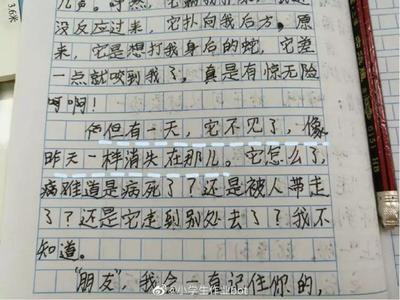 没反应过来，它扑向我后方。原
来，它是想打我身后的蛇，它差
一点就咬到我了，真是有惊无险
呵啊！
但有一天，它不见了，像
昨天一样消失在那儿。它怎么了，
难道是病死了？还是被人带走
了？还是它走到别处去了？我不
知道。
“朋友”，我会一直记住你的，
@小学生作业bot